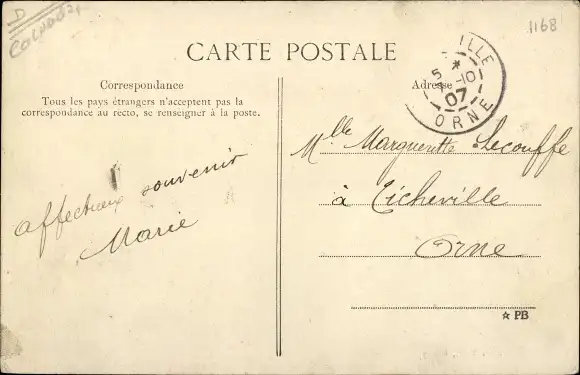 D
1168
CARTE POSTALE
Correspondance
Tous les pays étrangers n'acceptent pas la
correspondance au recto, se renseigner à la poste.
affectueux souvenir
Marie
Adresse
VILLE
5 * -10
07
ORNE
Mlle Marguerite Lecouffe
à Ticheville
Orne
☆ PB